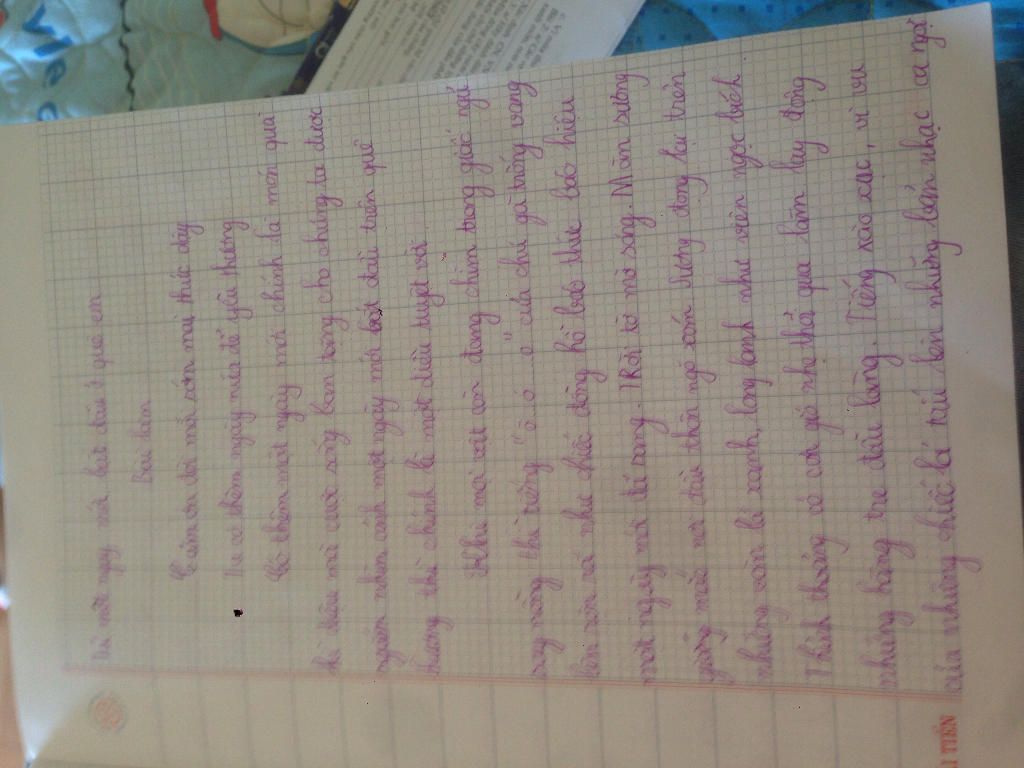 Tả một ngày mới bắt đầu ở quê em
Bài làm
Cảm ơn đời mỗi sớm mai thức dậy
Ta có thêm ngày nữa để yêu thương
Có thêm một ngày mới chính là món quà
kì diệu mà cuộc sống ban tặng cho chúng ta được
ngắm nhìn cảnh một ngày mới bắt đầu trên quê
hương thì chính là một điều tuyệt vời.
Khi mọi vật còn đang chìm trong giấc ngủ
say nồng thì tiếng "ò...ó...o" của chú gà trống vang
lên rộn rã như chiếc đồng hồ báo thức báo hiệu
một ngày mới đã sang. Trời tờ mờ sáng. Màn sương
giăng mắc nơi đầu thôn ngõ xóm sương đọng lại trên
những vòm lá xanh, long lanh như viên ngọc bích
Thỉnh thoảng có cơn gió nhẹ thổi qua làm lay động
những hàng tre đầu làng. Tiếng xào xạc, vi vu
của những chiếc lá tấu lên những bản nhạc ca ngợi
ẢI TIẾN